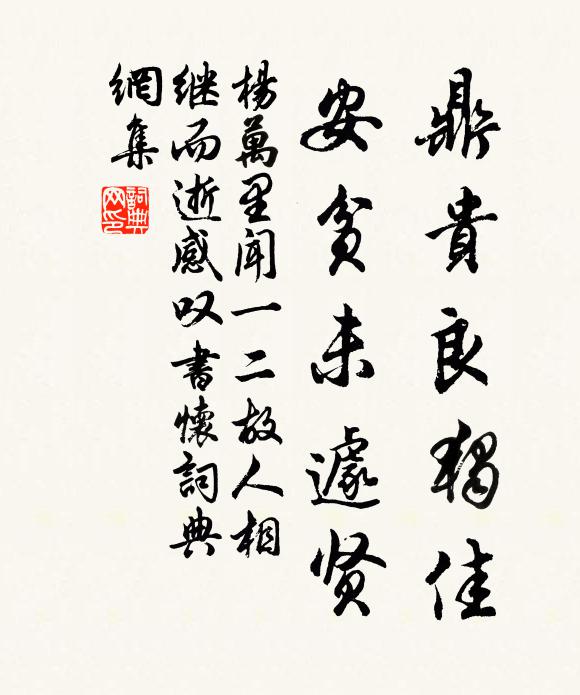 鼎貴良獨佳
安貧未遽贤
楊萬里聞一二故人相
继而逝感叹書懷詞典
網集
詞典
网印